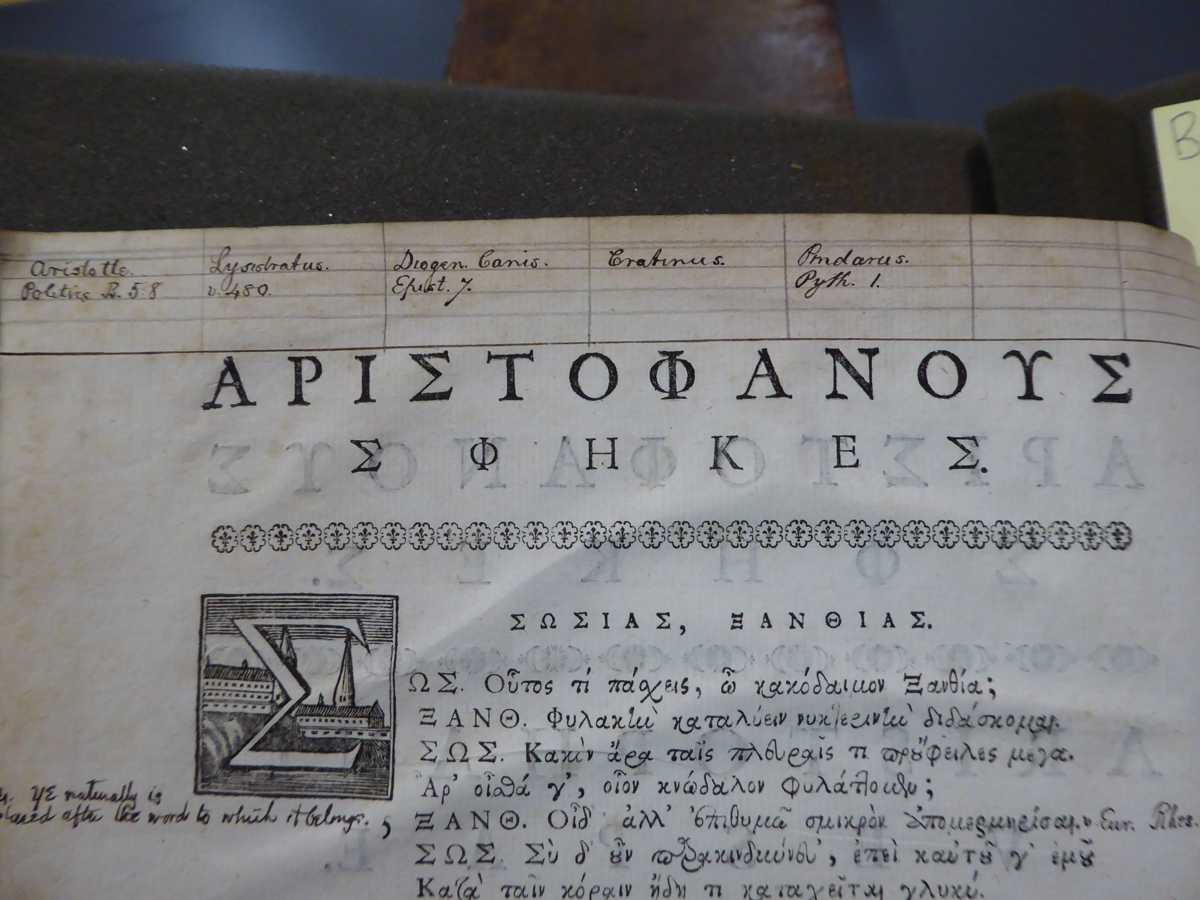 B
Aristotle. Lysistratus. Diogen. Canis. Cratinus. Pindarus.
Politics B. 5.8 v. 480. Epist. 7. Pyth. 1.
ΑΡΙΣΤΟΦΑΝΟΥΣ
ΣΦΗΚΕΣ.
ΣΩΣΙΑΣ, ΞΑΝΘΙΑΣ.
ΣΩΣ. Οὗτος τί πάσχεις, ὦ κακόδαιμον Ξανθία;
ΞΑΝΘ. Φυλακὴν καταλύειν νυκτερινὴν διδάσκομαι.
ΣΩΣ. Κακὸν ἄρα ταῖς πλευραῖς τι προὔφειλες μέγα.
Ἆρ' οἶσθά γ', οἷον κνώδαλον φυλάττομεν;
γε naturally is
placed after the word to which it belongs.
ΞΑΝΘ. Οἶδ' ἀλλ' ἐπιθυμῶ σμικρὸν ἀπομερμηρίσαι. v. Eur. Rhes.
ΣΩΣ. Σὺ δ' οὖν παρακινδύνευ', ἐπεὶ καὐτοῦ γ' ἐμοῦ
Κατὰ ταῖν κόραιν ἤδη τι καταχεῖται γλυκύ.